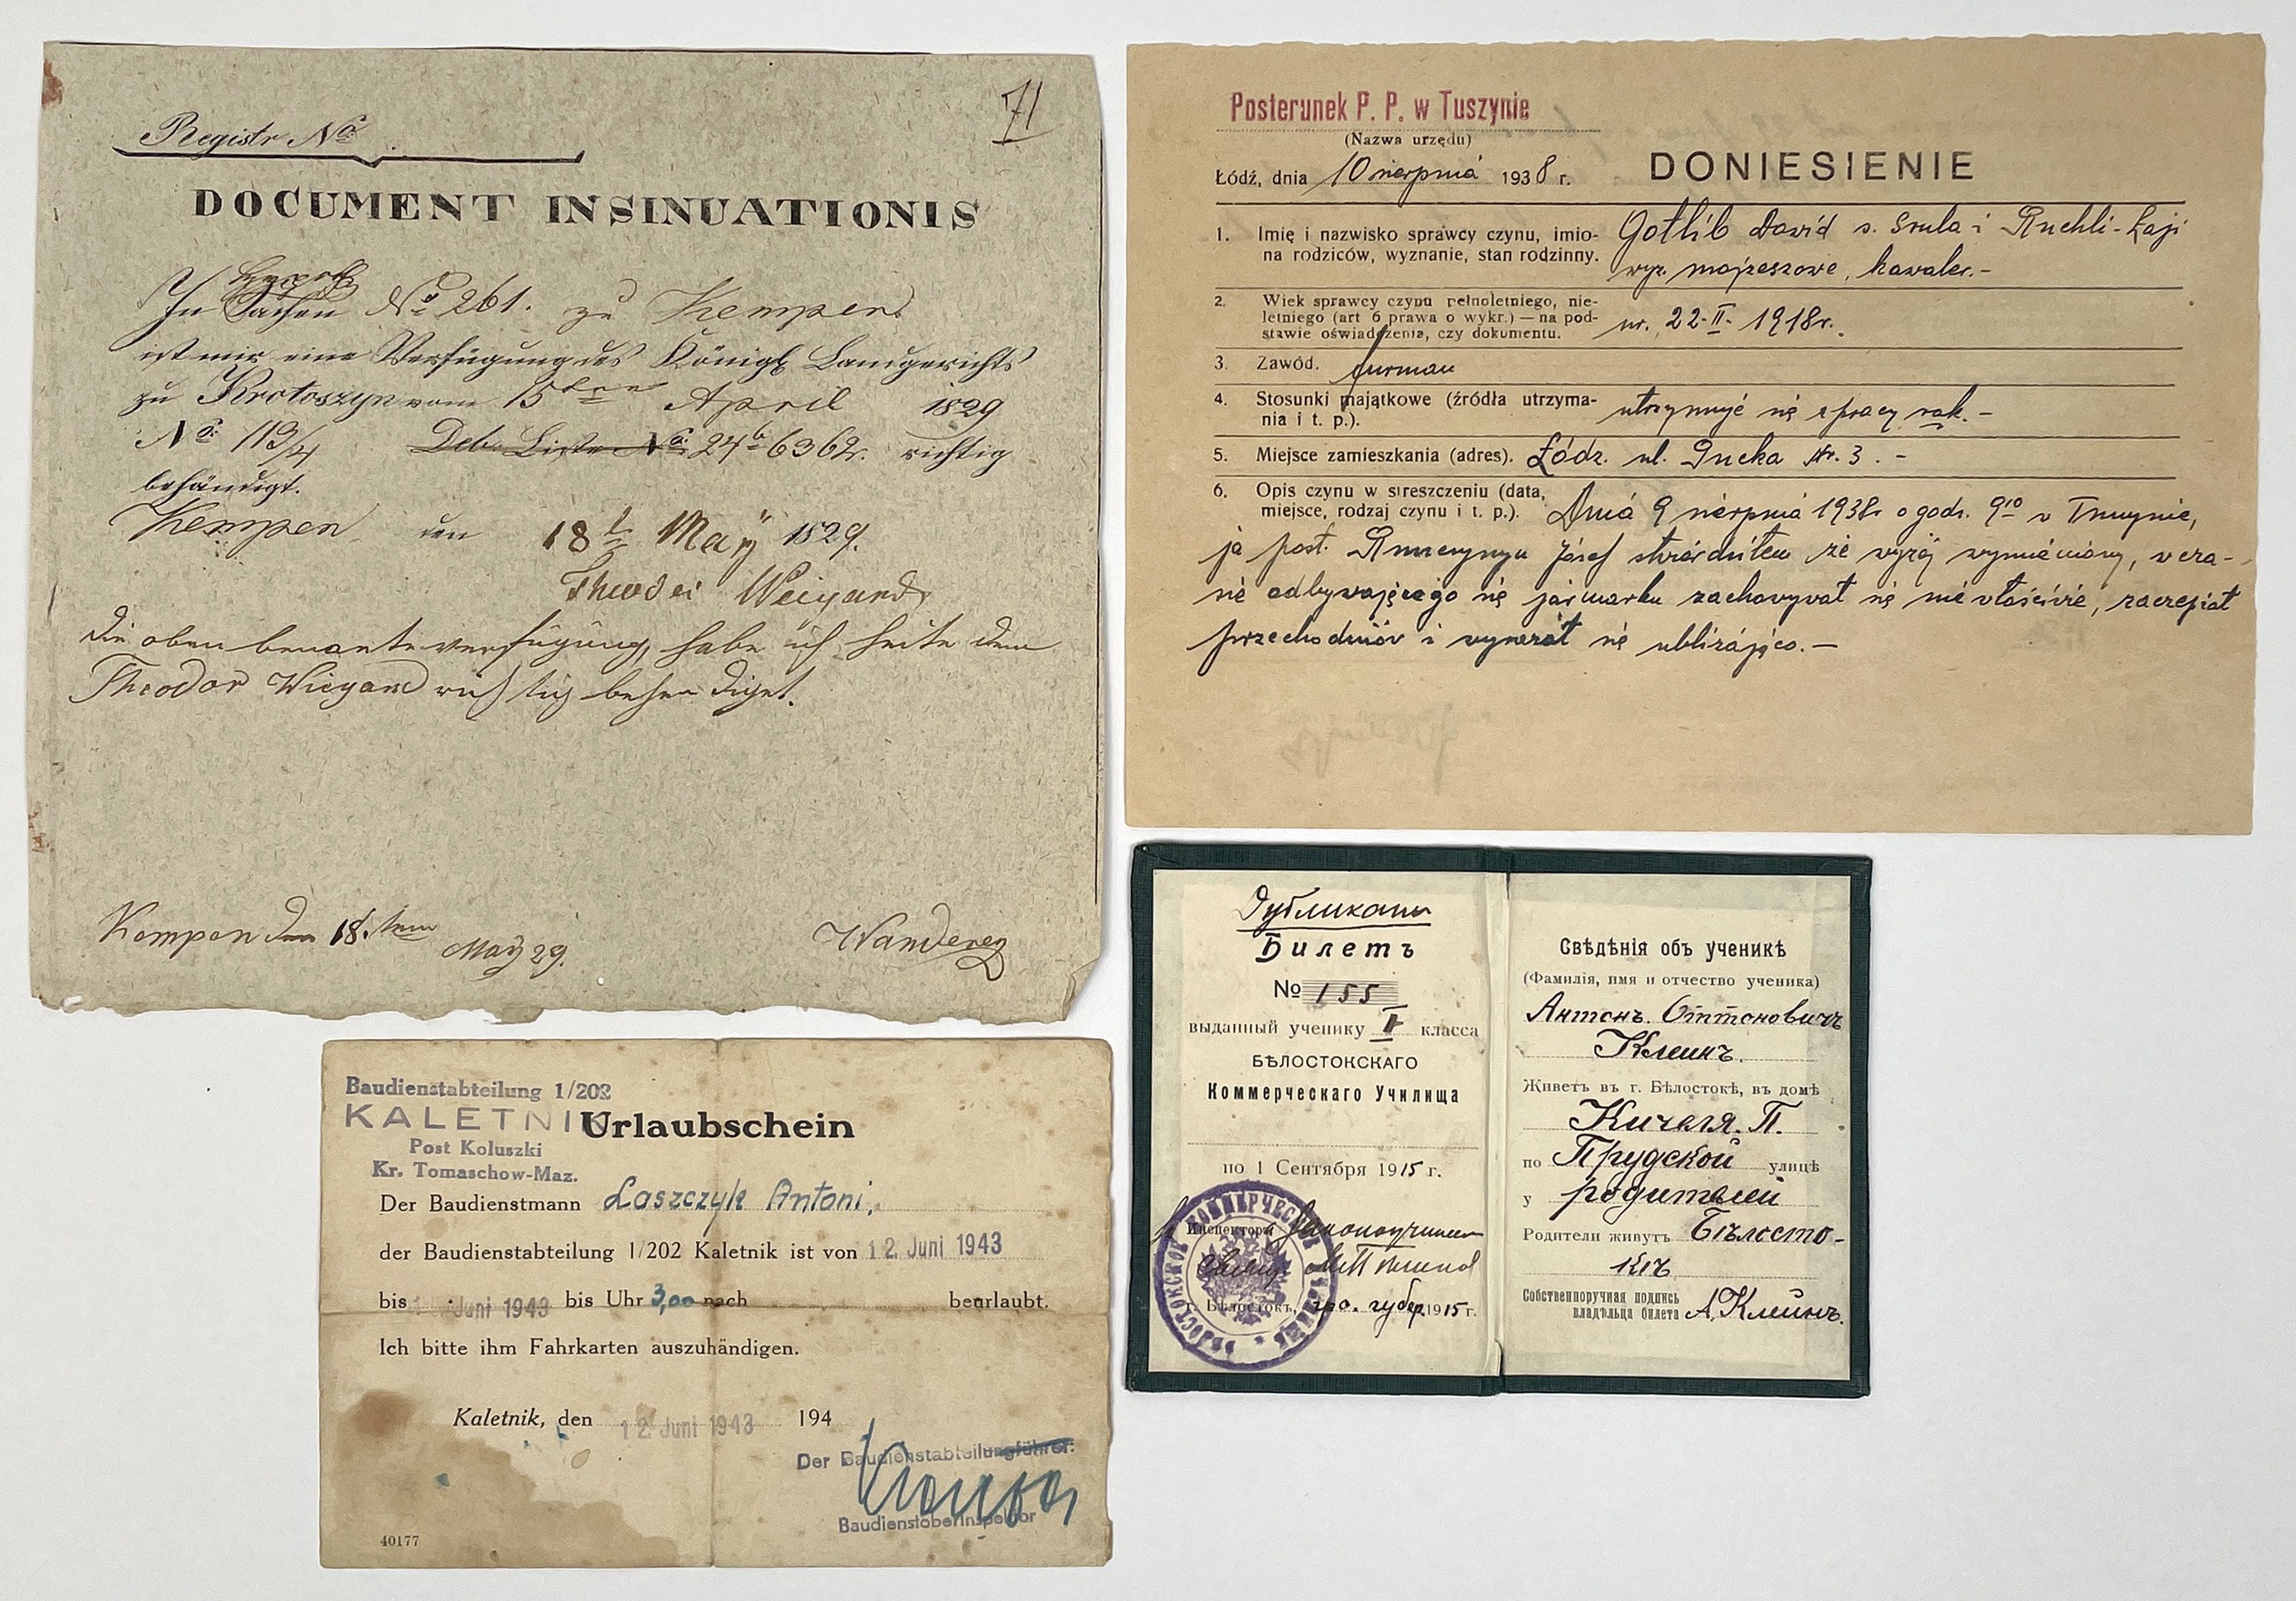 71
Registr. No
DOCUMENT INSINUATIONIS
In Sachen No 261. zu Kempen
ist mir eine Verfügung des Königl. Landgerichts
zu Krotoszyn vom 15ten April 1829
No. 113/4 Deb. Liste No. 24 6362. richtig
behändigt.
Kempen den 18t May 1829.
Weigand
die oben benante verfügung, habe ich heite dem
Theodor Wiegand richtig behendiget.
Kempen den 18.ten May 29.
Posterunek P. P. w Tuszynie
(Nazwa urzędu)
Łódź, dnia 10 sierpnia 1938 r.
DONIESIENIE
1. Imię i nazwisko sprawcy czynu, imio-
na rodziców, wyznanie, stan rodzinny.
Gotlib Dawid s. Srula i Ruchli-Łaji
wyz. mojżeszowe, kawaler.-
2. Wiek sprawcy czynu pełnoletniego, nie-
letniego (art 6 prawa o wykr.) — na pod-
stawie oświadczenia, czy dokumentu.
ur. 22-II- 1918r.
3. Zawód. furman
4. Stosunki majątkowe (źródła utrzyma-
nia i t. p.).
utrzymuje się z pracy rąk.-
5. Miejsce zamieszkania (adres). Łódź. ul. Nr. 3. -
6. Opis czynu w streszczeniu (data,
miejsce, rodzaj czynu i t. p.).
Dnia 9 sierpnia 1938r o godz. 910 w Tuszynie,
ja post. Józef stwierdziłem że wyżej wymieniony, w cza-
sie odbywającego się jarmarku zachowywał się nie właściwie, zaczepiał
przechodniów i wyrażał się ubliżająco.—
Baudienstabteilung 1/202
KALETNIK
Post Koluszki
Kr. Tomaschow-Maz.
Urlaubschein
Der Baudienstmann Łaszczyk Antoni,
der Baudienstabteilung 1/202 Kaletnik ist von 12. Juni 1943
bis Juni 1943 bis Uhr 3,00 nach beurlaubt.
Ich bitte ihm Fahrkarten auszuhändigen.
Kaletnik, den 12. Juni 1943 194
Der Baudienstabteilungsführer:
Baudienstoberinspektor
40177
Дубликатъ
Билетъ
№ 155
выданный ученику II класса
БѢЛОСТОКСКАГО
Коммерческаго Училища
по 1 Сентября 1915 г.
Инспекторъ Законоучитель
г. Бѣлостокъ, 1915 г.
Свѣдѣнія объ ученикѣ
(Фамилія, имя и отчество ученика)
Антонъ. Оттоновичъ
Клеинъ.
Живетъ въ г. Бѣлостокѣ, въ домѣ
Кичеля. П.
по Прудской улицѣ
у родителей
Родители живутъ Бѣлосто-
кѣ
Собственноручная подпись
владѣльца билета А. Клейнъ.